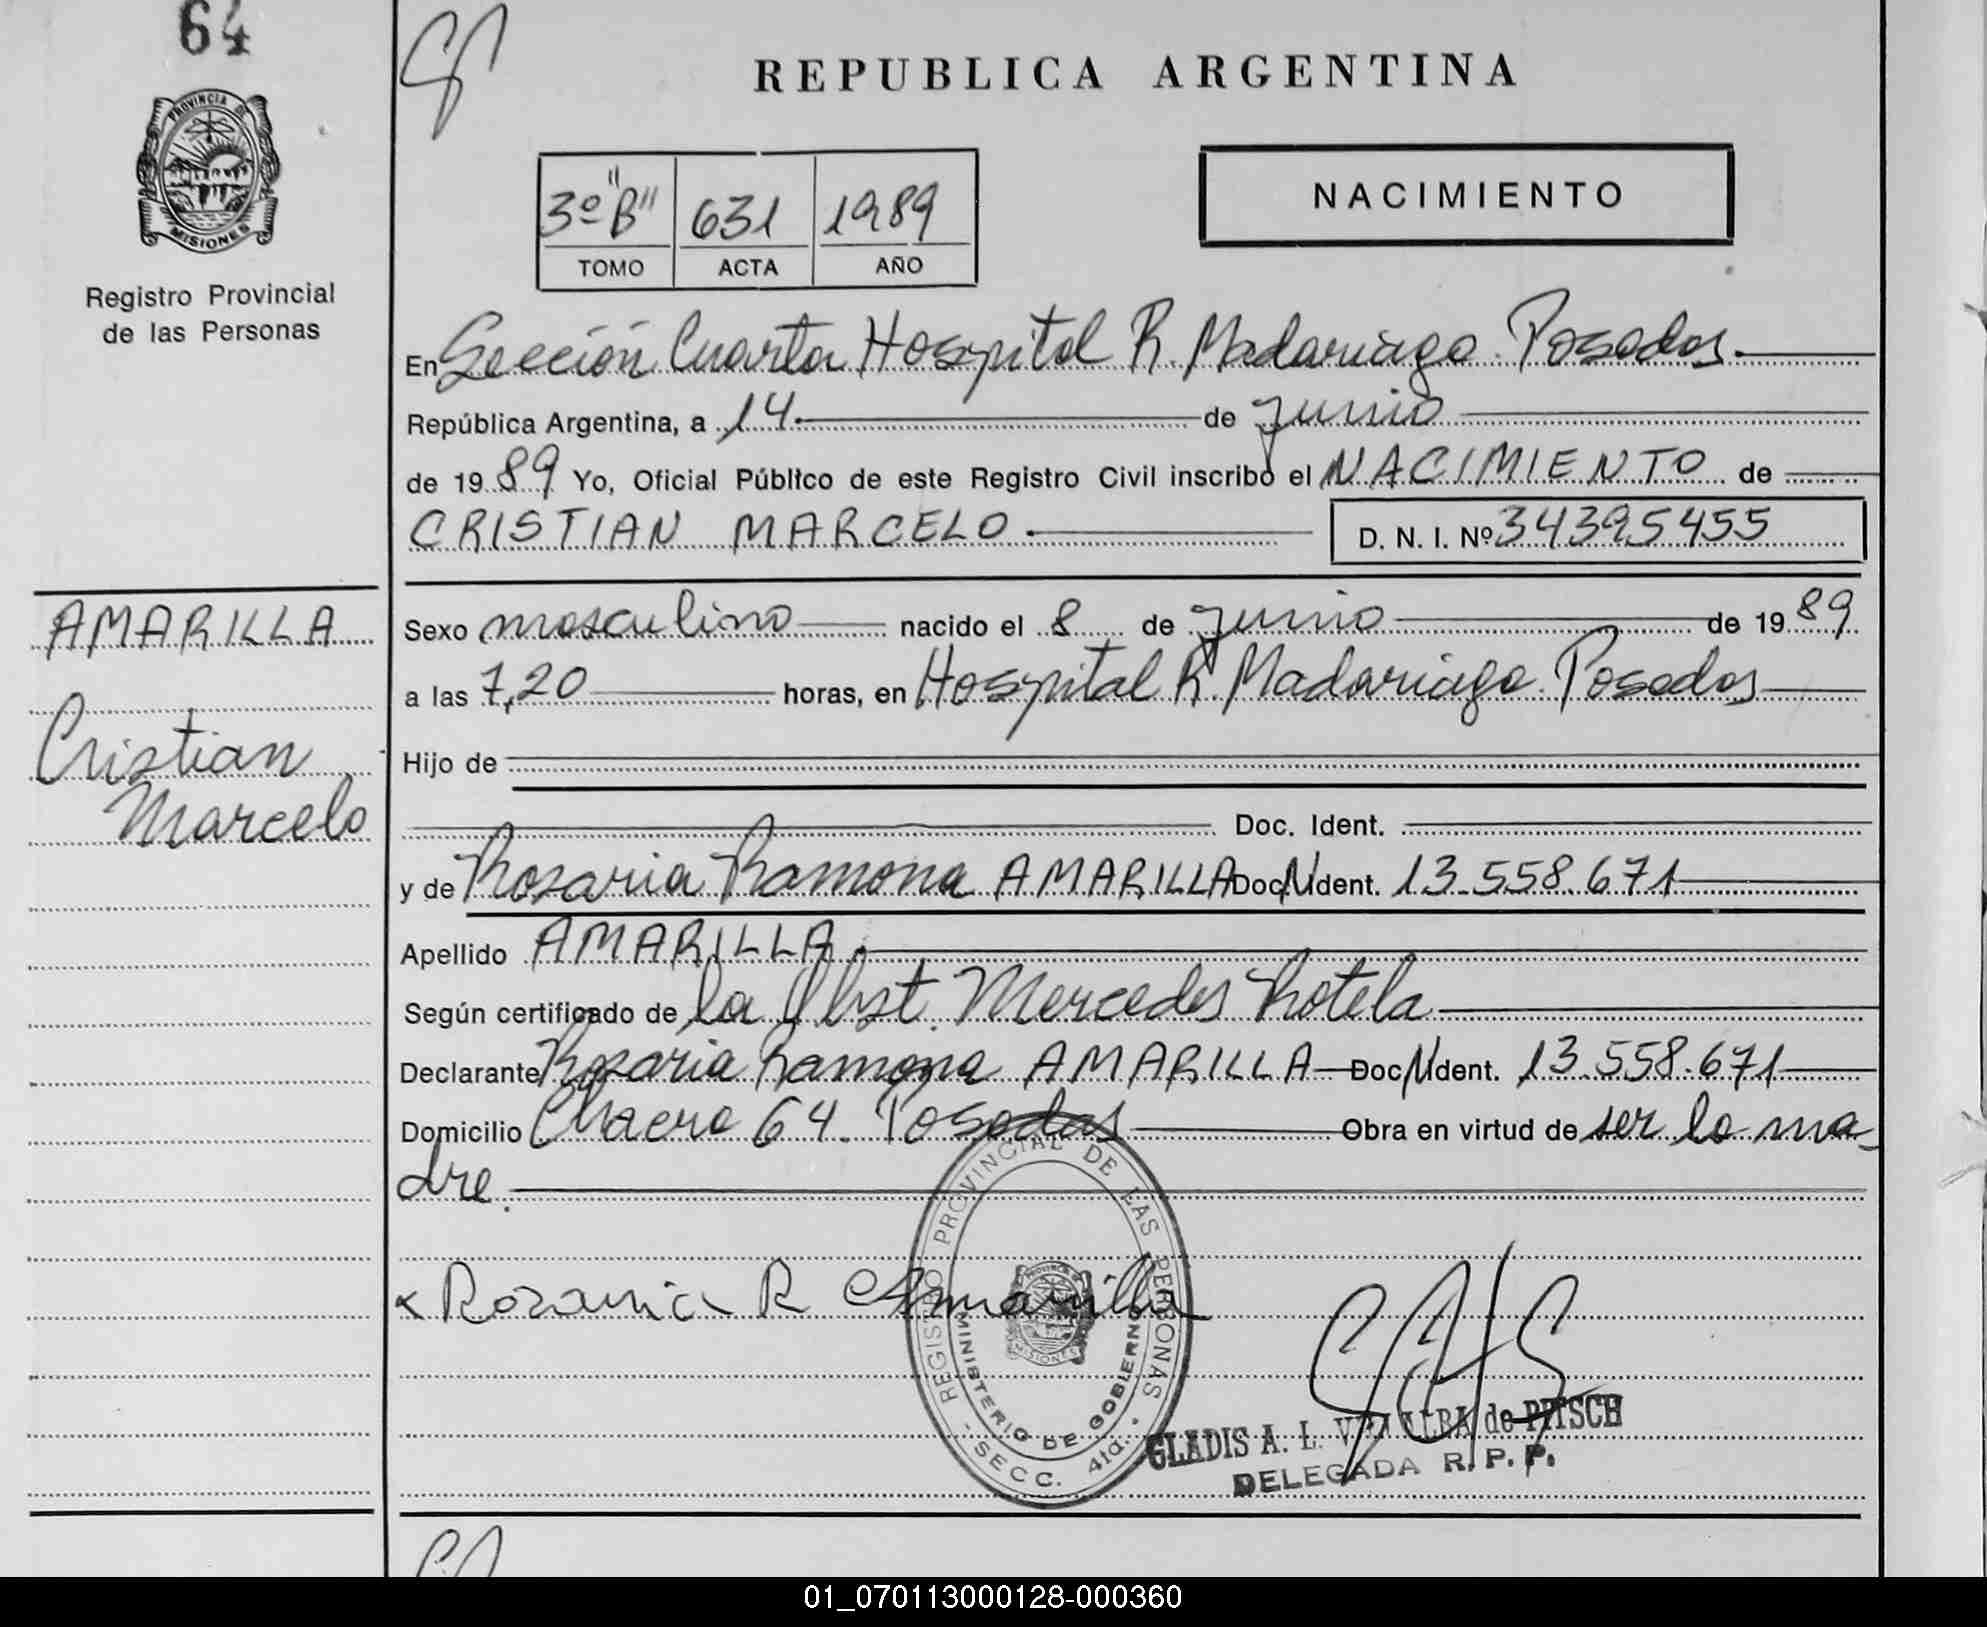 64
PROVINCIA DE
MISIONES
Registro Provincial
de las Personas
REPUBLICA ARGENTINA
3º "B" 631 1989
TOMO ACTA AÑO
NACIMIENTO
En Sección Cuarta Hospital R. Madariaga. Posadas.
República Argentina, a 14. de junio
de 19 89 Yo, Oficial Público de este Registro Civil inscribo el NACIMIENTO de
CRISTIAN MARCELO. D. N. I. Nº 34395455
AMARILLA
Cristian
Marcelo
Sexo masculino nacido el 8 de junio de 19 89
a las 7,20 horas, en Hospital R. Madariaga. Posadas
Hijo de
Doc. Ident.
y de Rosaria Ramona AMARILLA Doc. Ident. 13.558.671
Apellido AMARILLA.
Según certificado de la Obst. Mercedes Rotela
Declarante Rosaria Ramona AMARILLA Doc. Ident. 13.558.671
Domicilio Chacra 64. Posadas Obra en virtud de ser la ma-
dre.
x Rozaria R Amarilla
REGISTRO PROVINCIAL DE LAS PERSONAS
MINISTERIO DE GOBIERNO
- SECC. 4ta. -
PROVINCIA DE
MISIONES
GLADIS A. L. VILLALBA de PITSCH
DELEGADA R. P. P.
01_070113000128-000360